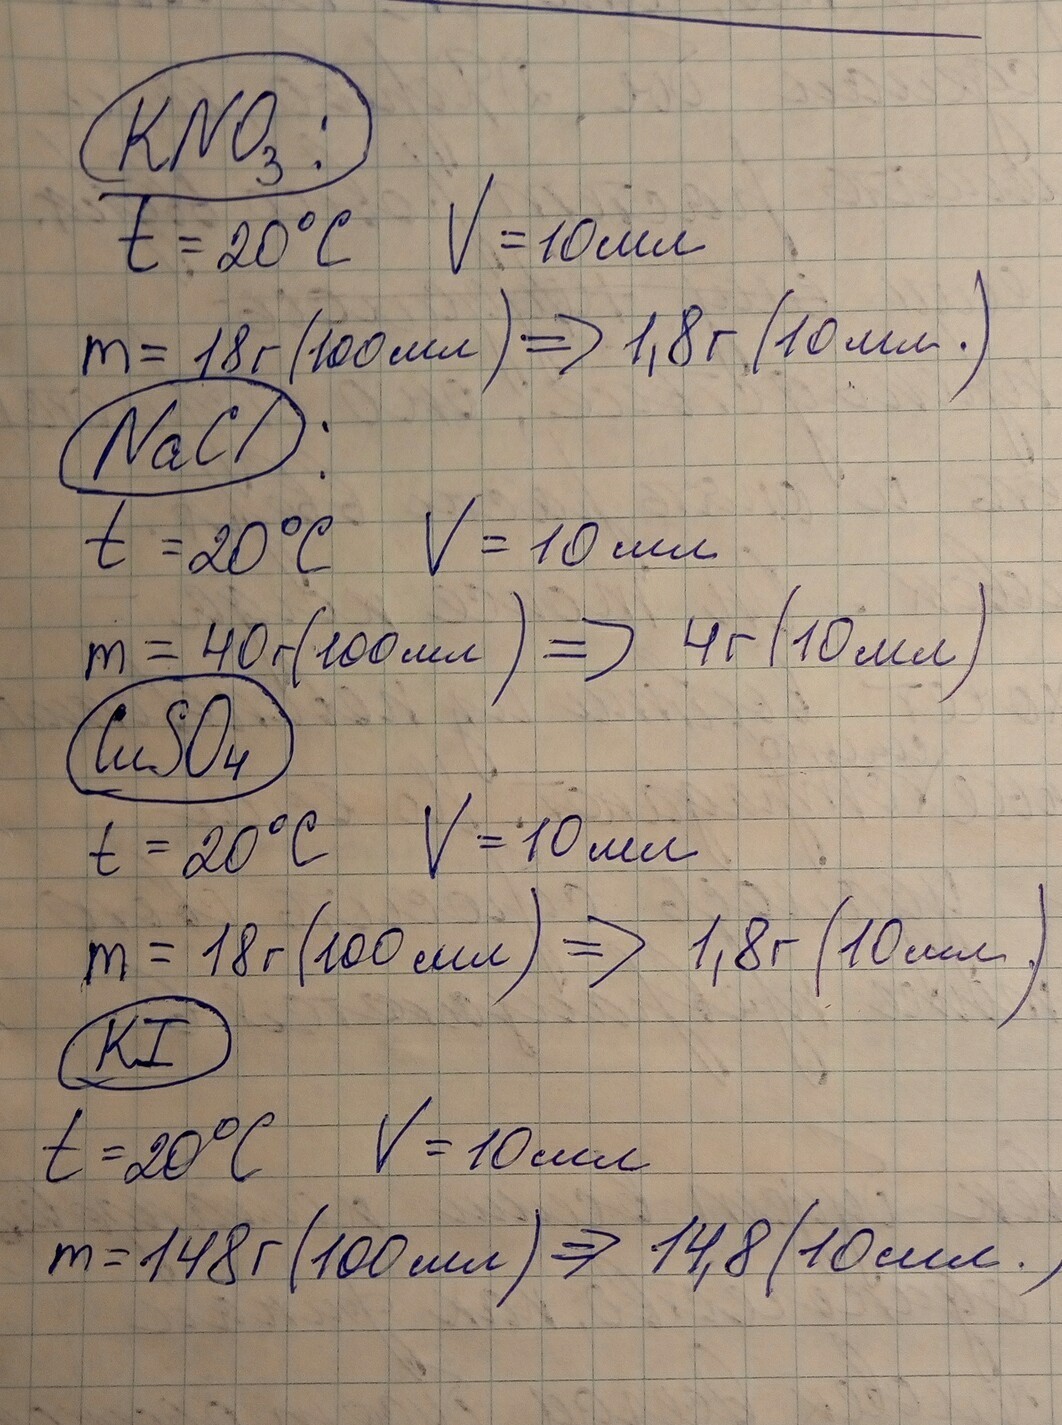 KNO₃:
t = 20°C V = 10мл
m = 18г(100мл) => 1,8г (10мл.)
NaCl:
t = 20°C V = 10мл
m = 40г(100мл) => 4г (10мл)
CuSO₄
t = 20°C V = 10мл
m = 18г (100мл) => 1,8г (10мл.)
KI
t = 20°C V = 10мл
m = 148г (100мл) => 14,8 (10мл.)